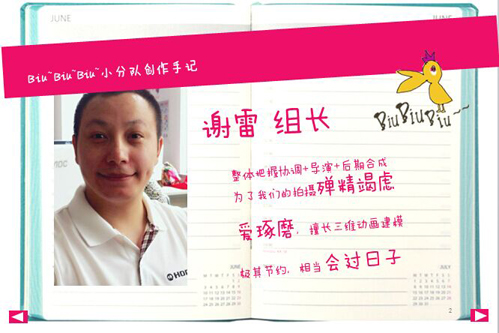 JUNE
JUNE
Biu~Biu~Biu~小分队创作手记
BiuBiuBiu~~
谢雷 组长
整体把握协调+导演+后期合成
为了我们的拍摄殚精竭虑
爱琢磨，擅长三维动画建模
极其节约，相当会过日子
JUNE
JULY
2